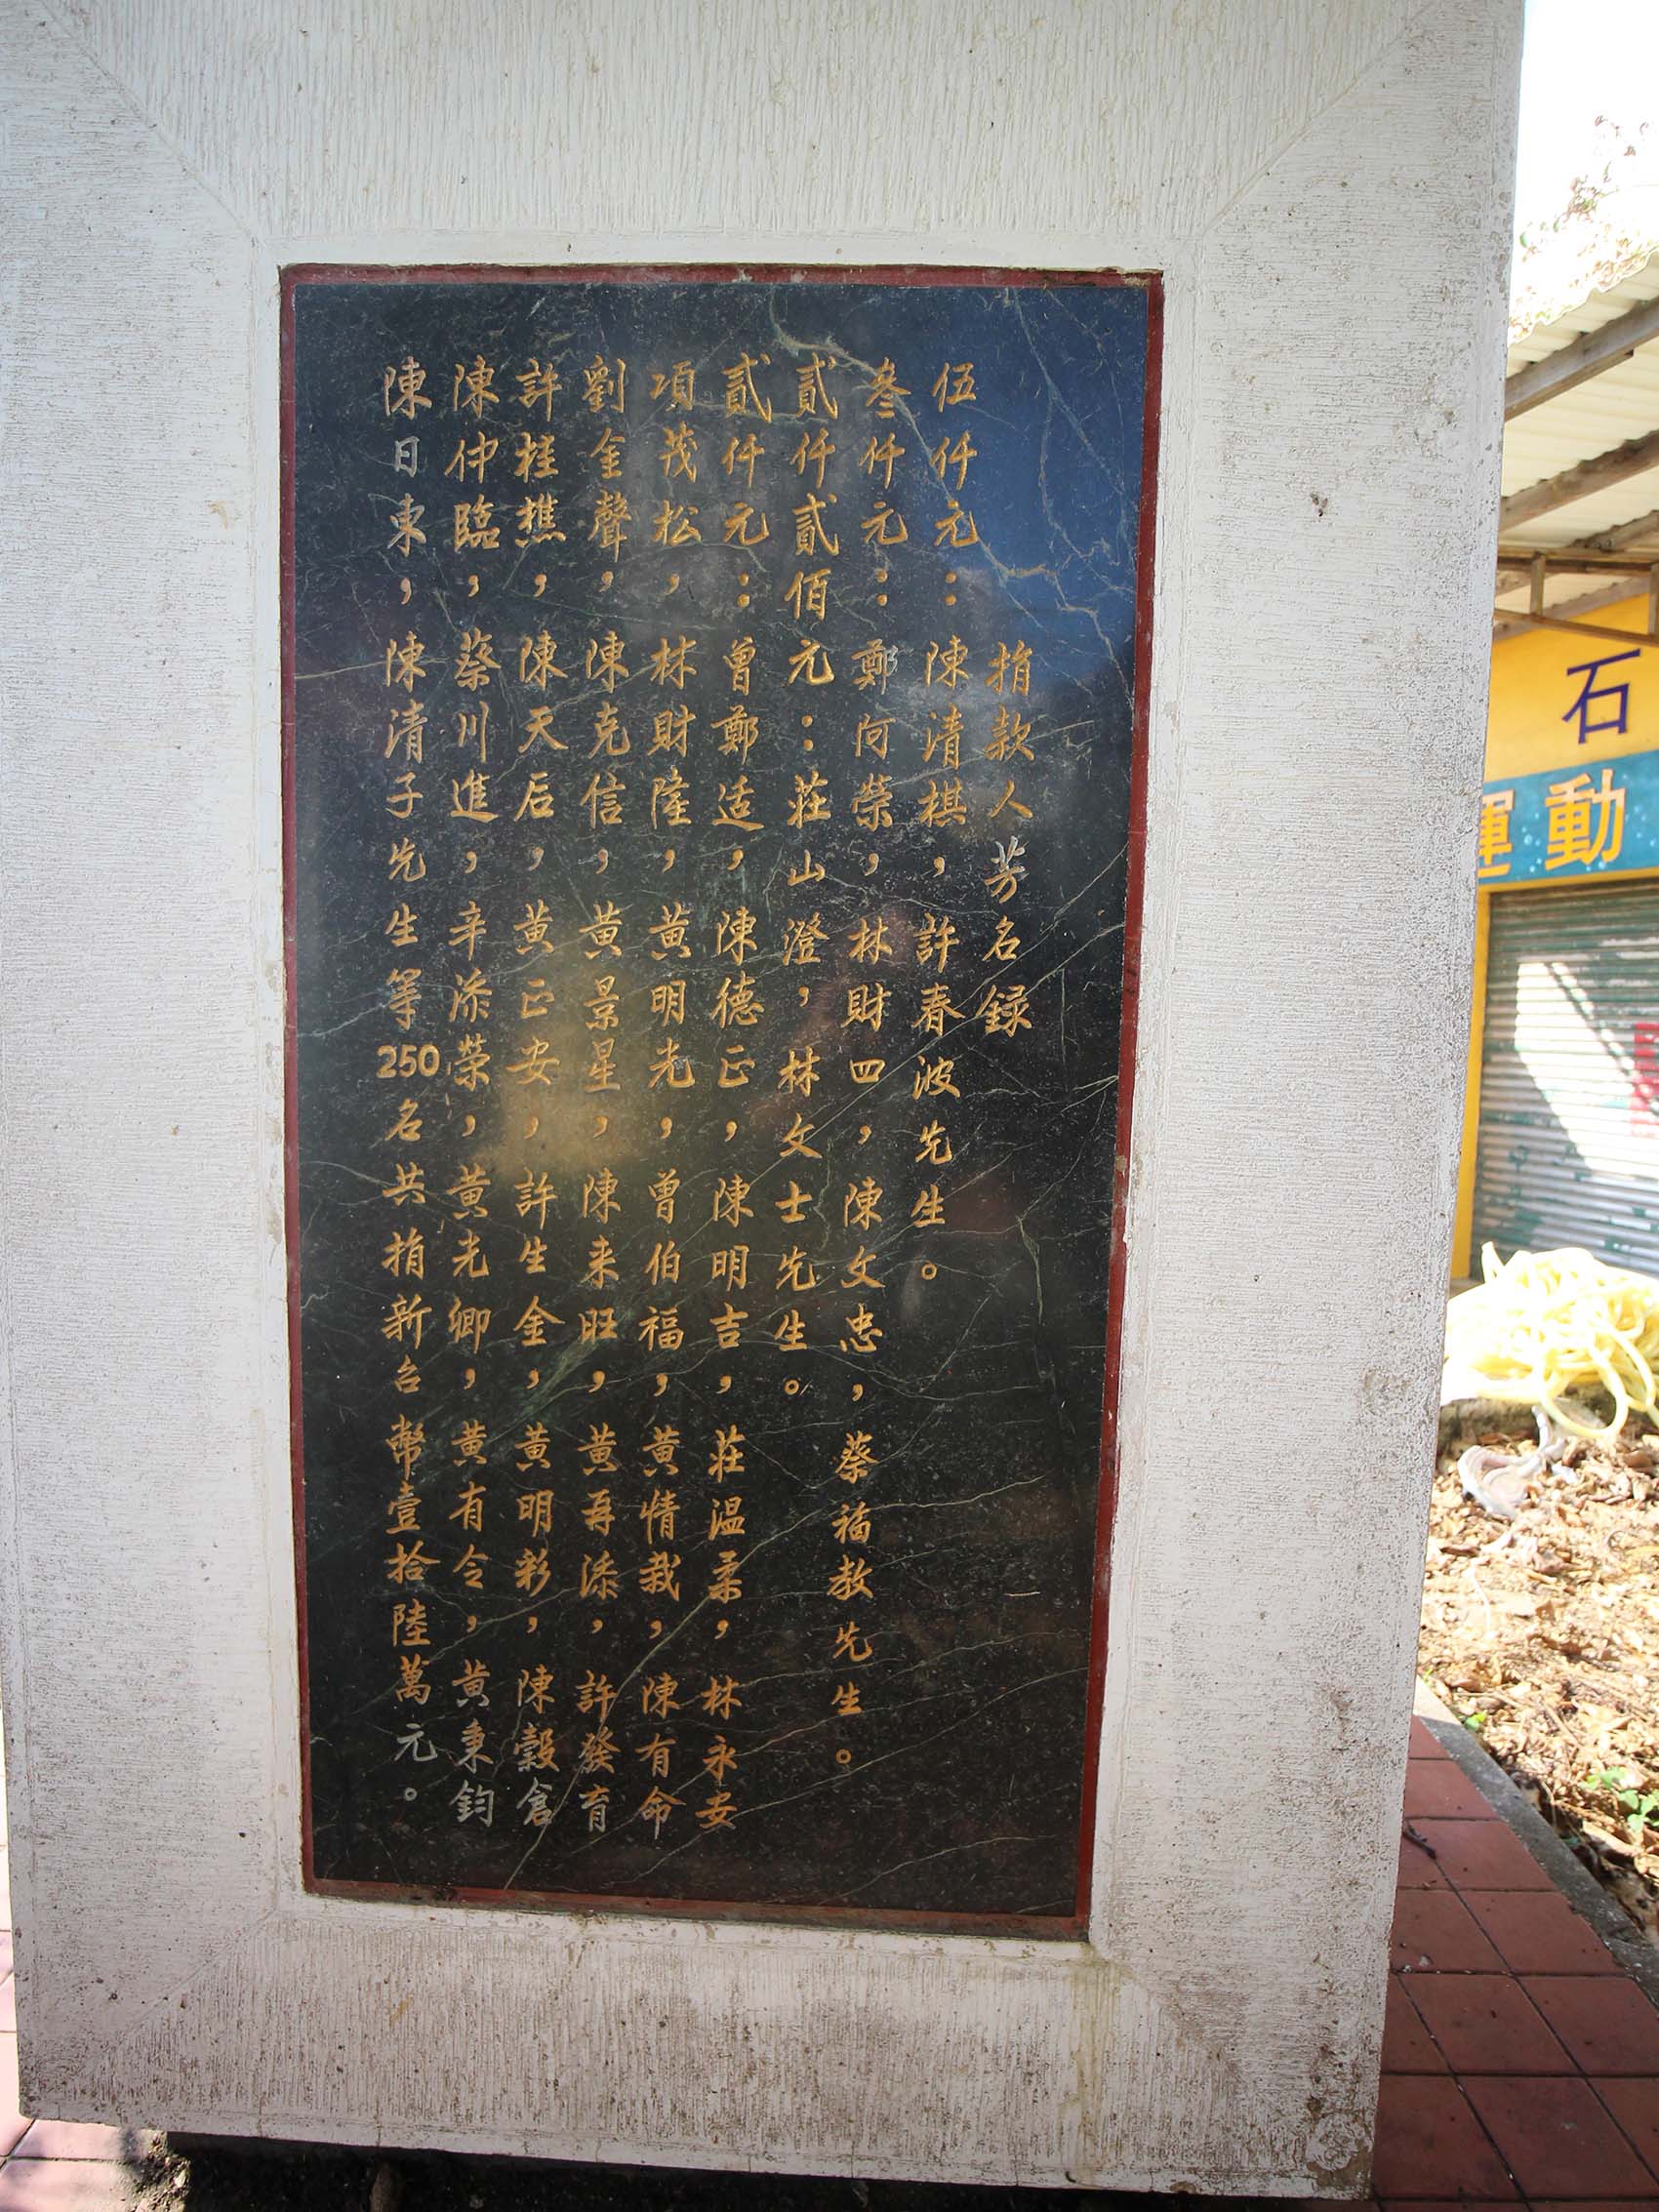 捐款人芳名録
伍仟元：陳清棋，許春波先生。
叁仟元：鄭阿榮，林財四，陳文忠，蔡福教先生。
貳仟貳佰元：莊山澄，林文士先生。
貳仟元：曾鄭适，陳德正，陳明吉，莊温柔，林永安
項茂松，林財隆，黄明光，曾伯福，黄情栽，陳有命
劉金聲，陳克信，黄景星，陳来旺，黄再添，許發育
許桂樵，陳天后，黄正安，許生金，黄明彩，陳穀倉
陳仲臨，蔡川進，辛添榮，黄光卿，黄有令，黄秉鈞
陳日東，陳清子先生等250名共捐新台幣壹拾陸萬元。
石
運動